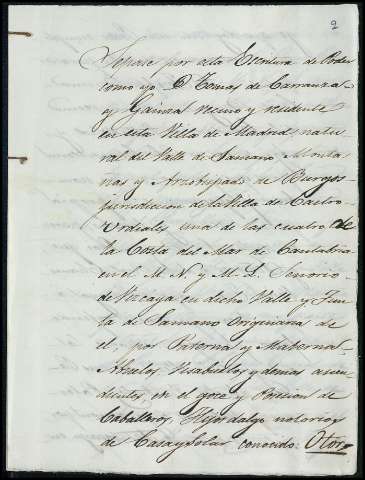 2
Sepase por esta Escritura de Poder
como yo D Tomas de Carranza
y Gainza vecino y residente
en esta Villa de Madrid, natu
ral del Valle de Samano Monta
ñas y Arzobispado de Burgos
jurisdiccion de la Villa de Castro
Urdiales una de las cuatro de
la Costa del Mar de Cantabria
en el M. N. y M. L. Senorio
de Vizcaya en dicho Valle y Jun
ta de Samano Originaria de
el por Paterna y Materna
Abuelos Visabuelos y demas asien
dientes, en el goce y Posesion de
Caballeros, Hijos dalgo notorios
de Casa y Solar conocido: Otorgo